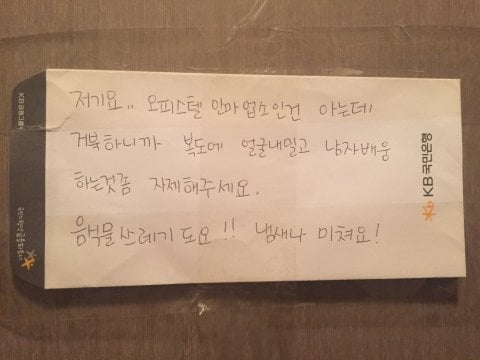 저기요.. 오피스텔 안마 업소인건 아는데
거북하니까 복도에 얼굴내밀고 남자배웅
하는것좀 자제해주세요.
음식물 쓰레기 도요!! 냄새나 미쳐요!
KB국민은행